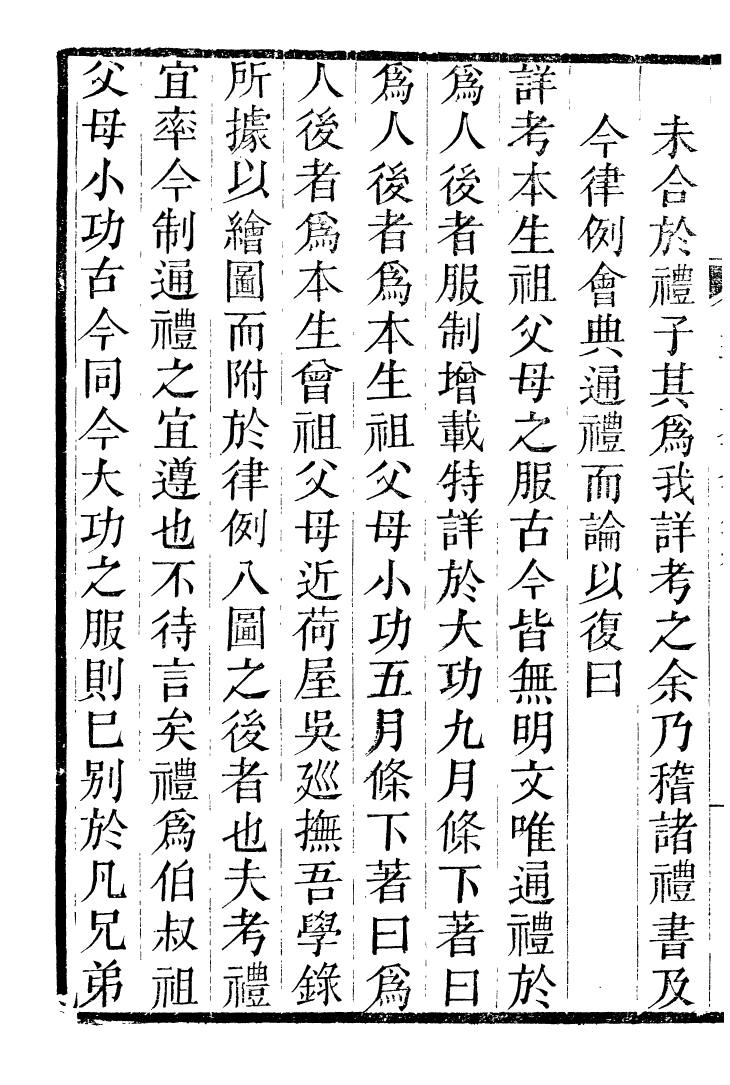 未合於禮子其爲我詳考之余乃稽諸禮書及
今律例會典通禮而論以復曰
詳考本生祖父母之服古今皆無明文唯通禮於
爲人後者服制增載特詳於大功九月條下著曰
爲人後者爲本生祖父母小功五月條下著曰爲
人後者爲本生曾祖父母近荷屋吳廵撫吾學錄
所據以繪圖而附於律例八圖之後者也夫考禮
宜率今制通禮之宜遵也不待言矣禮爲伯叔祖
父母小功古今同今大功之服則巳别於凡兄弟